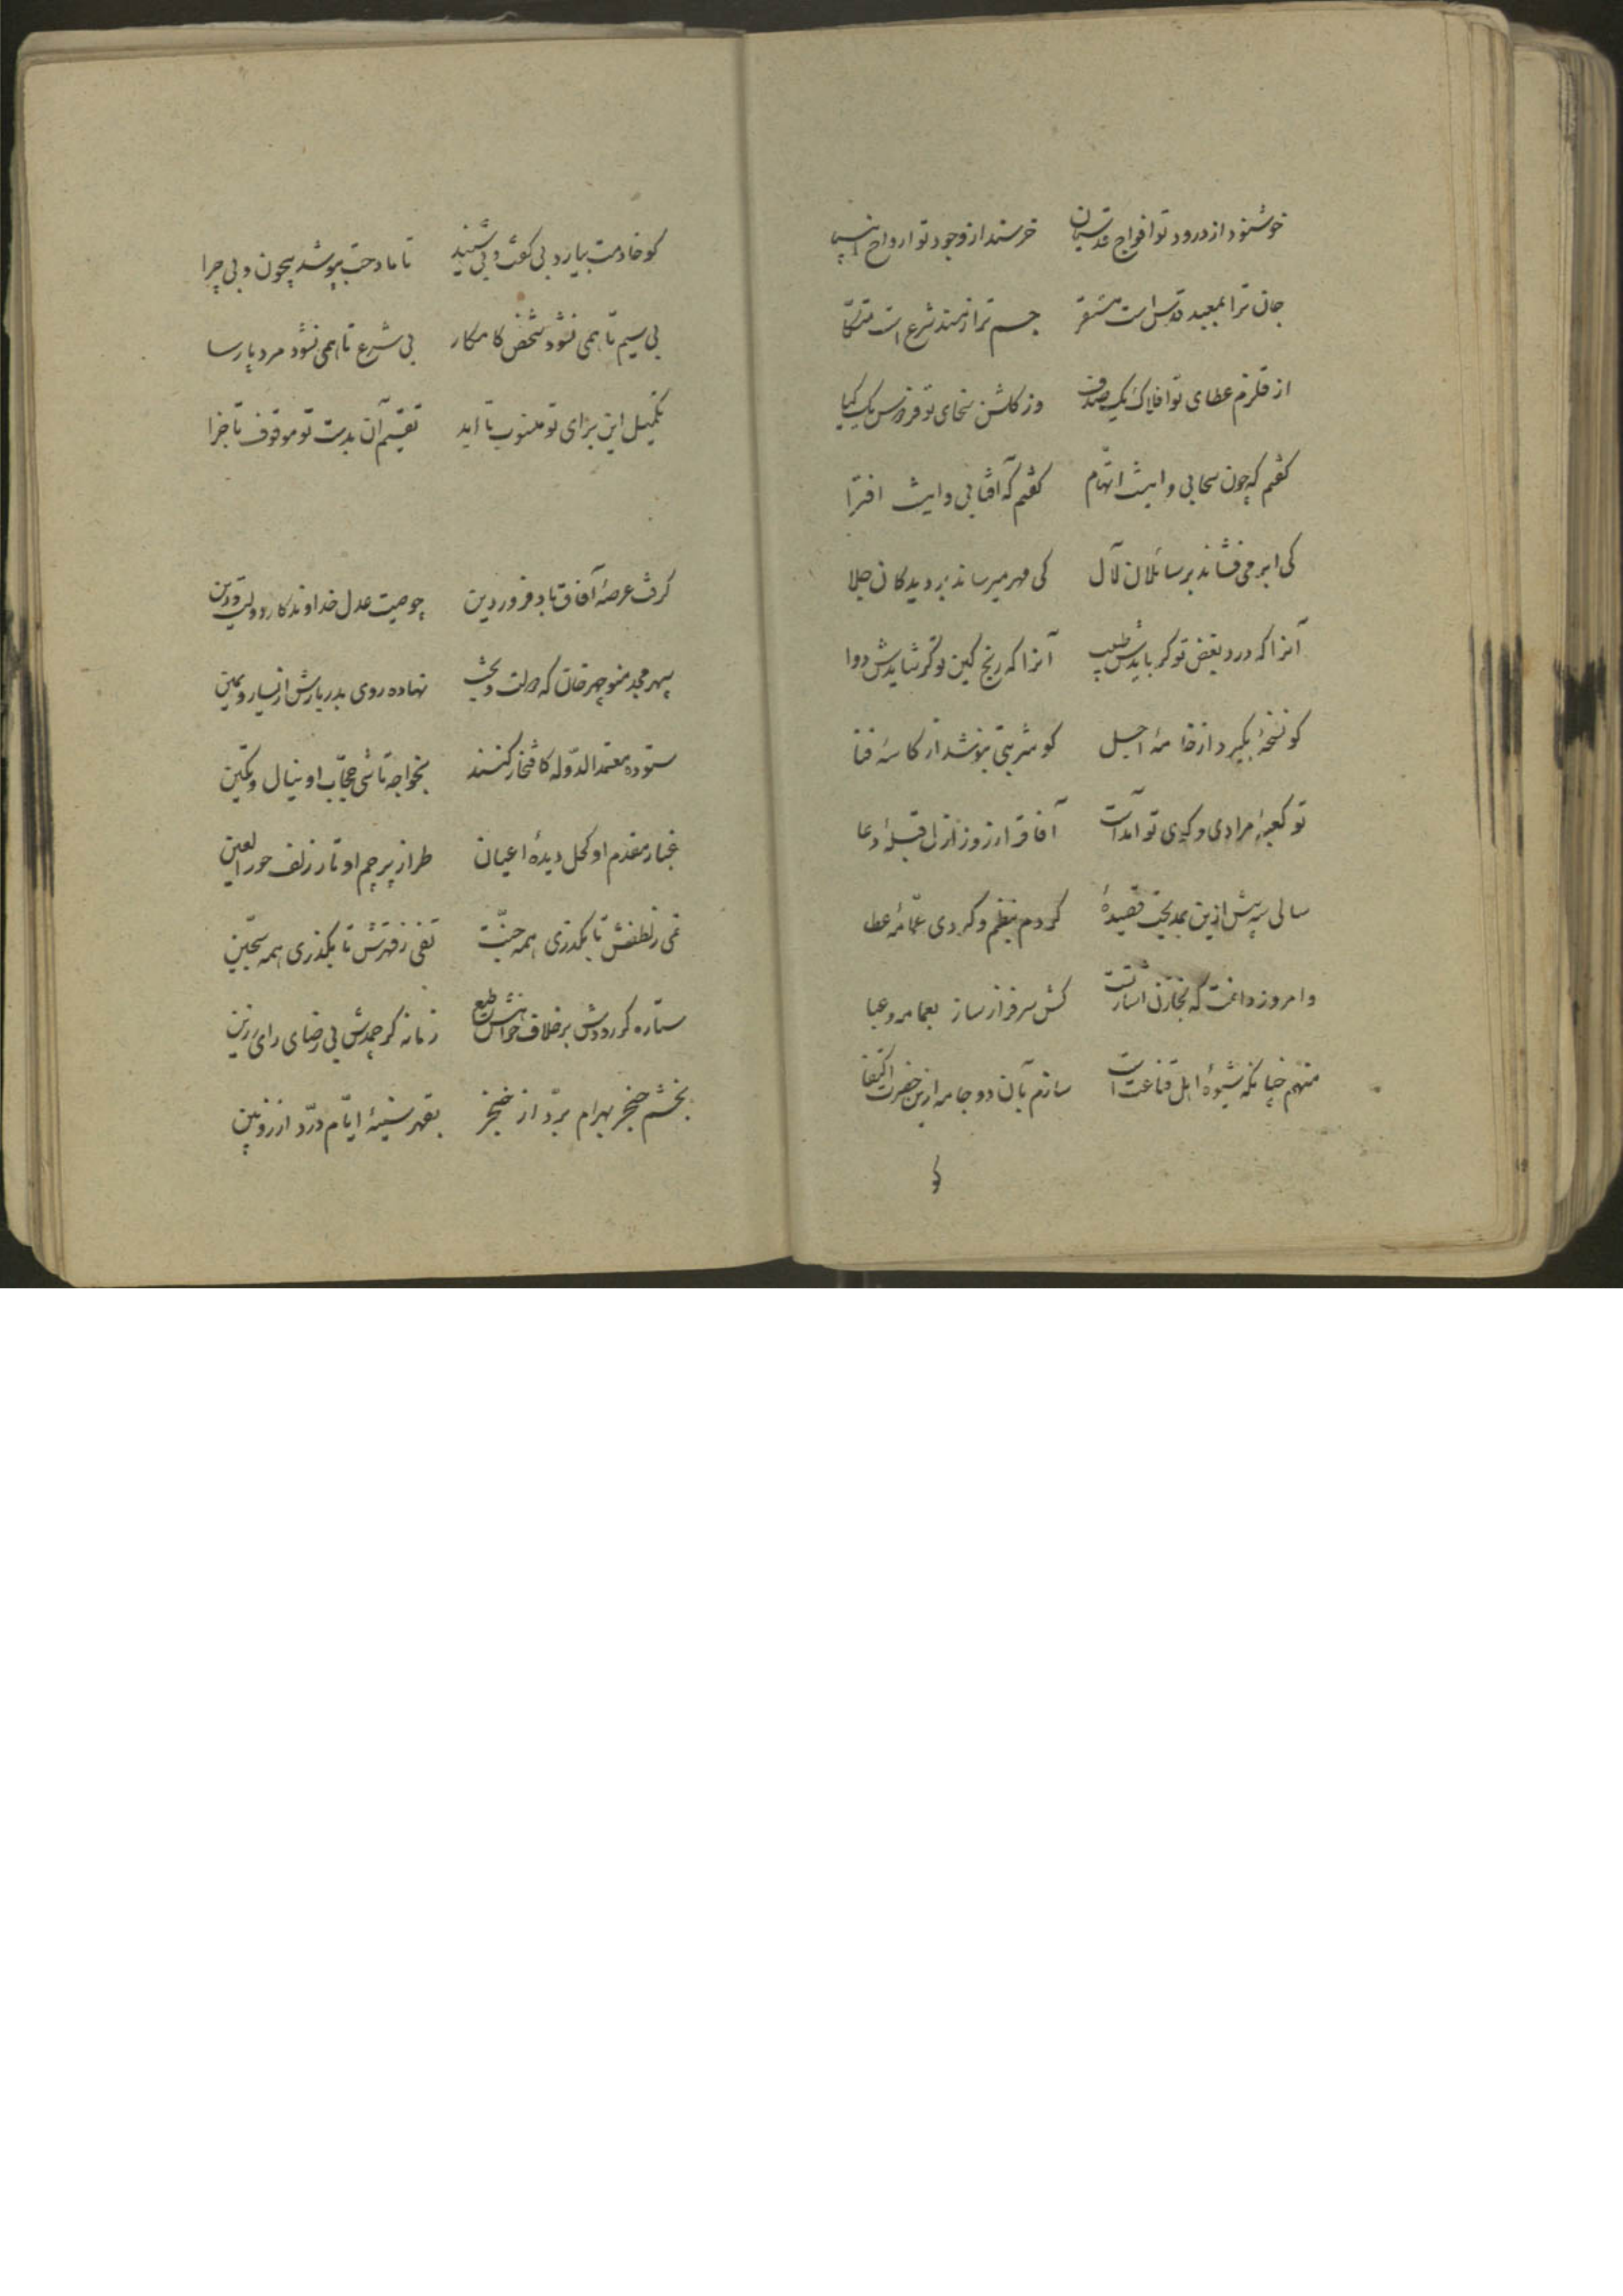 خوشنود از درود تو افواج قدسیان    خرسند از وجود تو ارواح انبیا
جان ترا بمعبد قدس است مستقر    جسم ترا ز مسند شرع است متکّا
از قلزم عطای تو افلاک یک صدف    وز گلشن سخای تو فردوس یک گیا
گفتم که چون سحابی و اینت اتّهام    گفتم که آفتابی و اینت افترا
کی ابر می فشاند بر سائلان لآل    کی مهر میرساند بر دیدگان جلا
آنرا که درد بغض تو گر بایدش طبیب    آنرا که رنج کین تو گر شایدش دوا
کو نسخهٔ بگیرد از خامهٔ اجل    کو شربتی بنوشد از کاسهٔ فنا
تو کعبهٔ مرادی و کوی تو آمدست    آفاق را ز روز ازل قبلهٔ دعا
سالی سه پیش ازین بمدیحت قصیدهٔ    کردم بنظم و کردی عمّامهٔ عطا
و امروز وقتست که بخازن اشارتست    کش سرفراز ساز بعمامه و عبا
منهم چنانکه شیوهٔ اهل قناعت است    سازم بآن دو جامه ازین حضرت اکتفا
کو
کو خادمت بیارد بی گفت و بی شنید    تا مادحت بپوشد بیچون و بی چرا
بی سیم تا همی نشود شخص کامکار    بی شرع تا همی نشود مرد پارسا
تکمیل این برای تو منسوب تا ابد    تقسیم آن بدست تو موقوف تا جزا
گرفت عرصهٔ آفاق باد فروردین    چو صیت عدل خداوندگار دولت و دین
سپهر مجد منوچهر خان که دولت و بخت    نهاده روی بدربارش از یسار و یمین
ستوده معتمد الدّوله کافتخار کنند    بخواجه تاشی حجّاب او ینال و تکین
غبار مقدم او کحل دیدهٔ اعیان    طراز پرچم او تار زلف حور العین
نمی ز لطفش تا بگذری همه جنّت    تفی ز قهرش تا بگذری همه سجّین
ستاره گر رودش بر خلاف خواهش طبع    زمانه گر جهدش بی رضای رای رزین
بخشم خنجر بهرام برّد از خنجر    بقهر سینهٔ ایّام درّد از زوبین